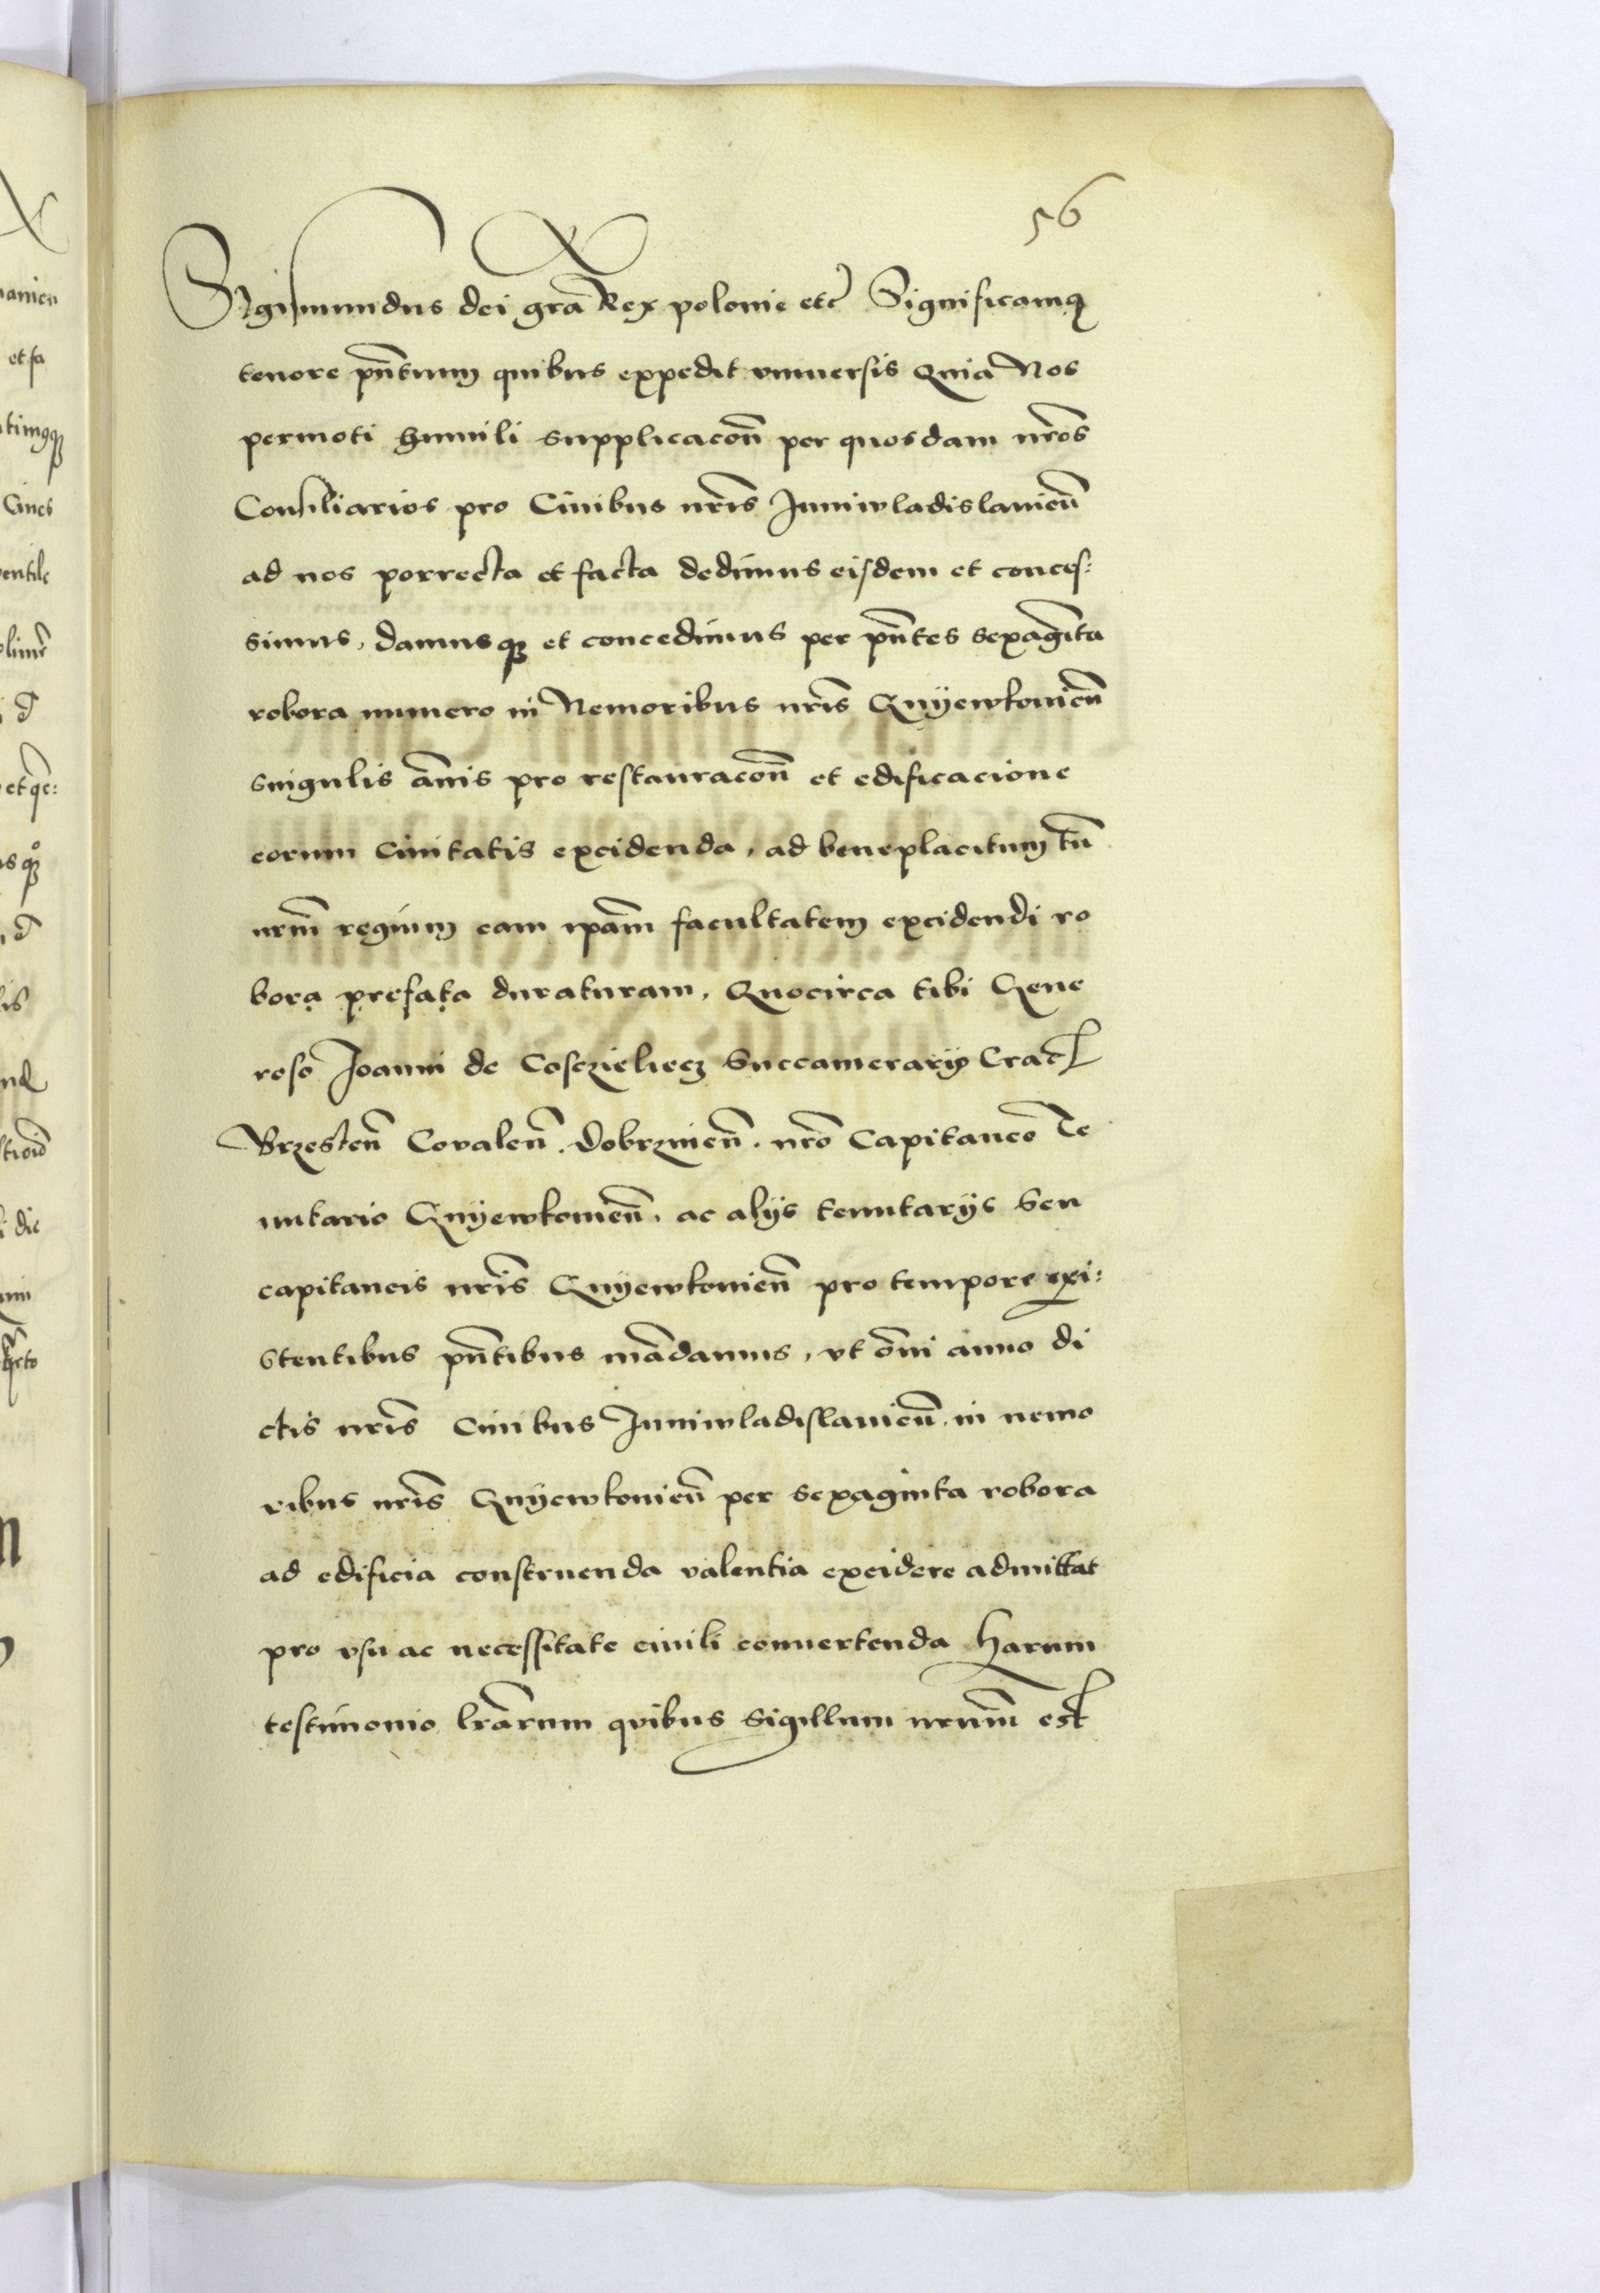 56
Sigismundus dei gr̃a Rex polonie etc̃ Significamꝰ
tenore pñtium quibus expedit vniuersis Quia Nos
permoti humili supplicacoñ per quosdam nr̃os
Consiliarios pro Ciuibus nr̃is Juniwladislauieñ
ad nos porrecta et facta dedimus eisdem et conces:
simus, damusqꝫ et concedimus per pñtes sexagĩta
robora numero in Nemoribus nr̃is Gnÿewkouieñ
singulis añis pro restauracoñ et edificacione
eorum Ciuitatis excidenda, ad beneplacitum tñ
nrm̃ regium eam ip̃am facultatem excidendi ro
bora prefata duraturam, Quocirca tibi Gene
roso Joanni de Cosczieliecz Succamerarÿo Crac
Brzesteñ Covaleñ. dobrznieñ. nr̃o Capitaneo Te
nutario Gnÿewkouieñ, ac alÿs tenutarÿs seu
capitaneis nr̃is Gnÿewkouieñ pro tempore exi:
stentibus pñtibus mãdamus, vt õni anno di
ctis nr̃is Ciuibus Juniwladislauieñ in nemo
ribus nr̃is Gnÿewkouieñ per sexaginta robora
ad edificia construenda valentia excidere admittat
pro vsu ac necessitate ciuili conuertenda Harum
testimonio lr̃arum quibus Sigillum nrum̃ est